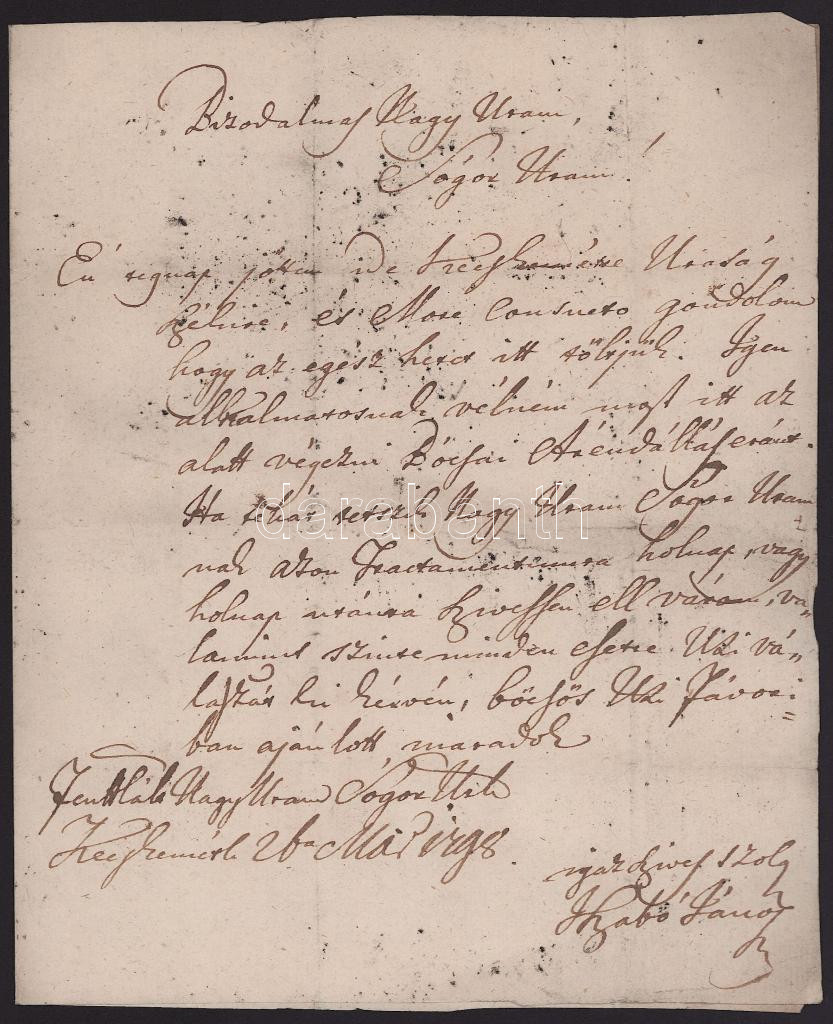 Bizodalmas Nagy Uram,
Sógor Uram!
Én tegnap jöttem ide Kecskemétre Uraság
székire, és More Consueto gondolom
hogy az egész hetet itt töltjük. Igen
alkalmatosnak vélném most itt az
alatt végezni Bócsai Árendállás eránt.
Ha tehát tetszik Nagy Uram Sógor Uram
nak azon Tractamentumra holnap, vagy
holnap utánra szivessen ell várom, va„
lamint szinte minden esetre Uri vá„
laszát ki kérvén, böcsös Uri Fávori=
ban ajánlott maradok
Nagy Uram Sógor Urk
Kecskemétt 26a Mai 1798
igaz szives szolg
Szabó János
darabanth